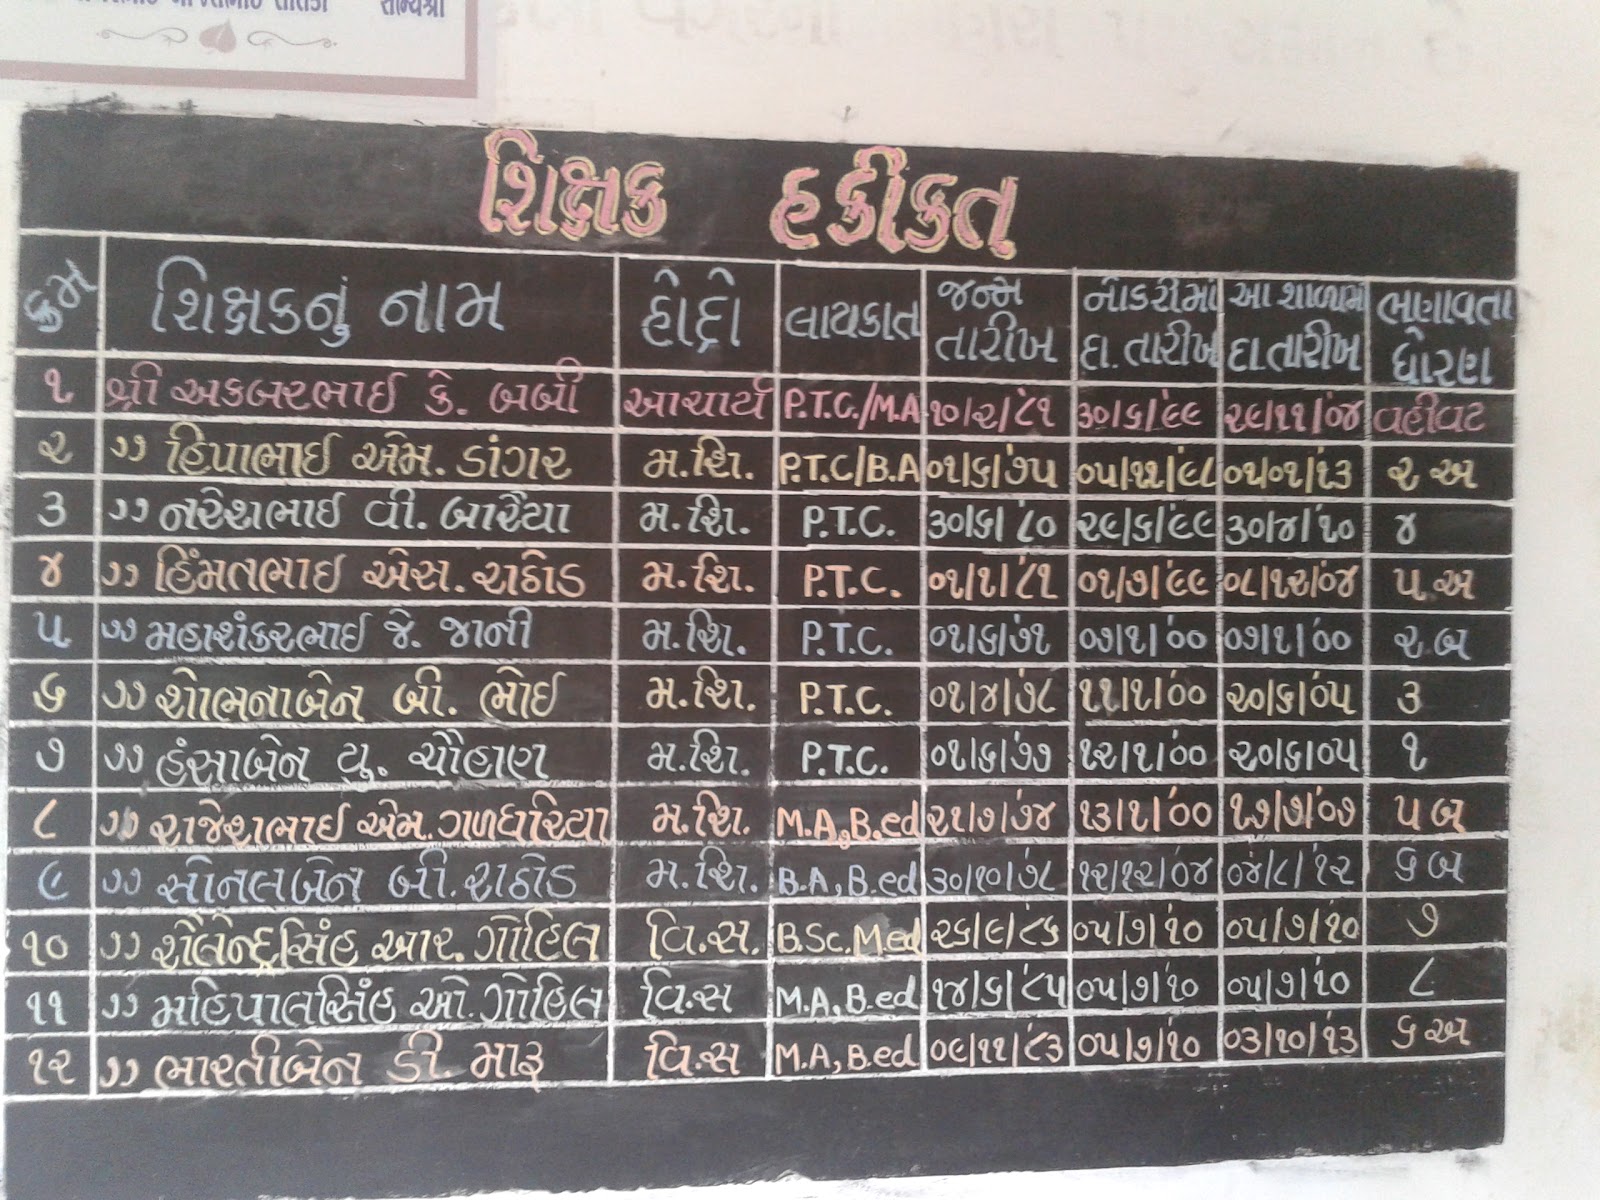 સૌમ્યશ્રી
શિક્ષક હકીકત
ક્રમ શિક્ષકનું નામ હોદ્દો લાયકાત જન્મ તારીખ નોકરીમાં દા. તારીખ આ શાળામાં દા. તારીખ ભણાવતા ધોરણ
૧ શ્રી અકબરભાઈ કે. બબી આચાર્ય P.T.C./M.A ૧૦/૨/'૮૧ ૩૦/૬/'૯૯ ૨૯/૧૧/'૦૪ વહીવટ
૨ ,, હિપાભાઈ એમ. ડાંગર મ.શિ. P.T.C/B.A ૦૧/૬/'૭૫ ૦૫/૧૧/'૯૮ ૦૧/૦૧/'૧૩ ૨ અ
૩ ,, નરેશભાઈ વી. બારૈયા મ.શિ. P.T.C. ૩૦/૬/'૮૦ ૨૯/૬/'૯૯ ૩૦/૪/'૧૦ ૪
૪ ,, હિંમતભાઈ એસ. રાઠોડ મ.શિ. P.T.C. ૦૧/૧/'૮૧ ૦૧/૭/'૯૯ ૦૮/૧૨/'૦૪ ૫ અ
૫ ,, મહાશંકરભાઈ જે. જાની મ.શિ. P.T.C. ૦૧/૬/'૭૧ ૦૭/૧/'૦૦ ૦૭/૧/'૦૦ ૨ બ
૬ ,, શોભનાબેન બી. ભોઈ મ.શિ. P.T.C. ૦૧/૪/'૭૮ ૧૧/૧/'૦૦ ૨૦/૬/'૦૫ ૩
૭ ,, હંસાબેન યુ. ચૌહાણ મ.શિ. P.T.C. ૦૧/૬/'૭૭ ૧૨/૧/'૦૦ ૨૦/૬/૦૫ ૧
૮ ,, રાજેશભાઈ એમ. ગળધરિયા મ.શિ. M.A, B.ed ૨૧/૭/'૭૪ ૧૩/૧/'૦૦ ૧૭/૭/'૦૭ ૫ બ
૯ ,, સોનલબેન બી. રાઠોડ મ.શિ. B.A, B.ed ૩૦/૧૦/'૭૮ ૧૨/૧૨/'૦૪ ૦૪/૮/'૧૨ ૬ બ
૧૦ ,, શૈલેન્દ્રસિંહ આર. ગોહિલ વિ.સ. B.Sc. M.ed ૨૬/૯/'૮૬ ૦૫/૭/'૧૦ ૦૫/૭/'૧૦ ૭
૧૧ ,, મહિપાલસિંહ ઓ. ગોહિલ વિ.સ M.A, B.ed ૧૪/૬/'૮૫ ૦૫/૭/'૧૦ ૦૫/૭/'૧૦ ૮
૧૨ ,, ભારતીબેન ડી. મારૂ વિ.સ M.A, B.ed ૦૯/૧૧/'૮૩ ૦૫/૭/'૧૦ ૦૩/૧૦/'૧૩ ૬ અ